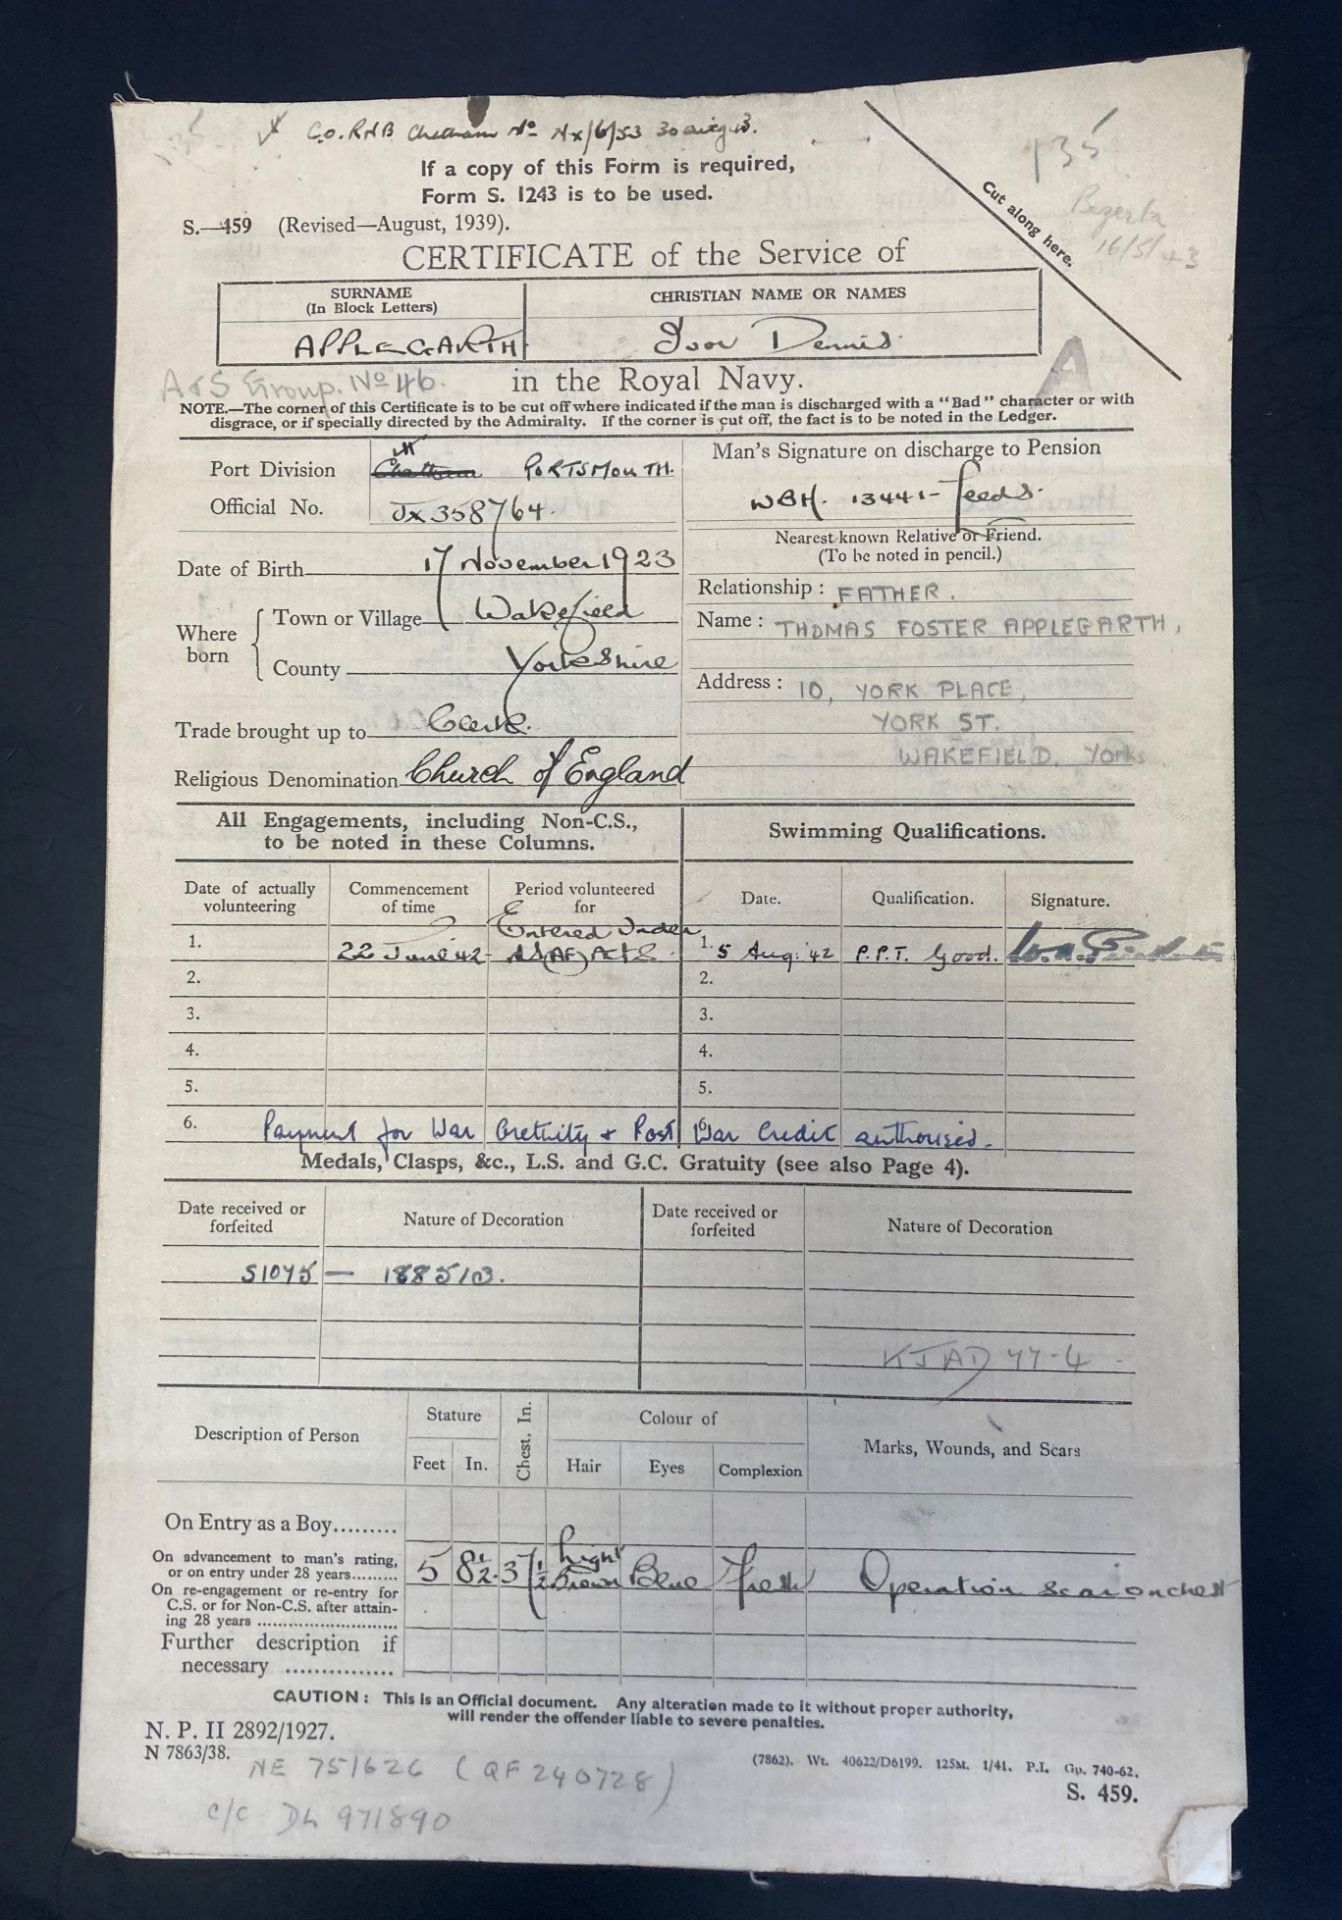 C.O. RNB Chatham No NX/6/53 30 aug 43.
135
If a copy of this Form is required,
Form S. 1243 is to be used.
Cut along here.
16/5/43
S.—459 (Revised—August, 1939).
CERTIFICATE of the Service of
SURNAME
(In Block Letters)
CHRISTIAN NAME OR NAMES
APPLEGARTH
Ivor Dennis
A
A & S Group. No 46.
in the Royal Navy.
NOTE.—The corner of this Certificate is to be cut off where indicated if the man is discharged with a "Bad" character or with
disgrace, or if specially directed by the Admiralty. If the corner is cut off, the fact is to be noted in the Ledger.
Port Division Chatham PORTSMOUTH.
Official No. JX 358764.
Man's Signature on discharge to Pension
WBH. 13441- Leeds.
Nearest known Relative or Friend.
(To be noted in pencil.)
Date of Birth 17 November 1923
Where born
Town or Village Wakefield
County Yorkshire
Trade brought up to Clerk.
Religious Denomination Church of England
Relationship : FATHER.
Name : THOMAS FOSTER APPLEGARTH,
Address : 10, YORK PLACE,
YORK ST.
WAKEFIELD. Yorks
All Engagements, including Non-C.S.,
to be noted in these Columns.
Swimming Qualifications.
Date of actually
volunteering
Commencement
of time
Period volunteered
for
Date.
Qualification.
Signature.
1. 22 June '42 Entered Under
NS(AF) Acts.
1. 5 Aug: '42 P.P.T. Good.
2. 2.
3. 3.
4. 4.
5. 5.
6. Payment for War Gratuity & Post War Credit authorised. 6.
Medals, Clasps, &c., L.S. and G.C. Gratuity (see also Page 4).
Date received or
forfeited
Nature of Decoration
Date received or
forfeited
Nature of Decoration
S1075 — 188513.
Description of Person
Stature
Feet In.
Chest. In.
Colour of
Hair Eyes Complexion
Marks, Wounds, and Scars
On Entry as a Boy.........
On advancement to man's rating,
or on entry under 28 years.........
5 8½. 37½ Light Brown Blue Fresh Operation scar on chest
On re-engagement or re-entry for
C.S. or for Non-C.S. after attain-
ing 28 years ...........................
Further description if
necessary ...............
CAUTION : This is an Official document. Any alteration made to it without proper authority,
will render the offender liable to severe penalties.
N. P. II 2892/1927.
N 7863/38.
NE 751626 (QF 240728)
c/c DL 971890
(7862). Wt. 40622/D6199. 125M. 1/41. P.I. Gp. 740-62.
S. 459.